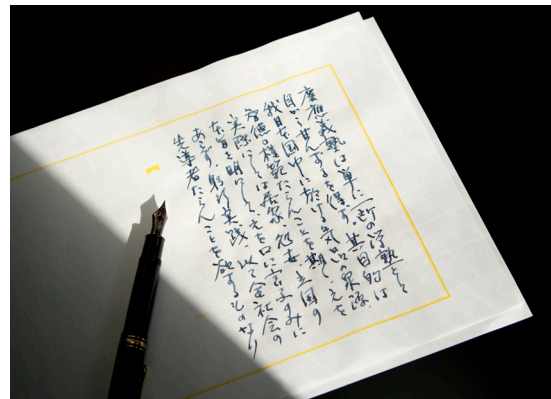 慶應義塾は単に一所の学塾として
自から甘んずるを得ず。其目的は
我日本国中に於ける気品の泉源、
智徳の模範たらんことを期し、之を
実際にしては居家、処世、立国の
本旨を明にして、之を口に言ふのみに
あらず、躬行実践、以て全社会の
先導者たらんことを欲するものなり